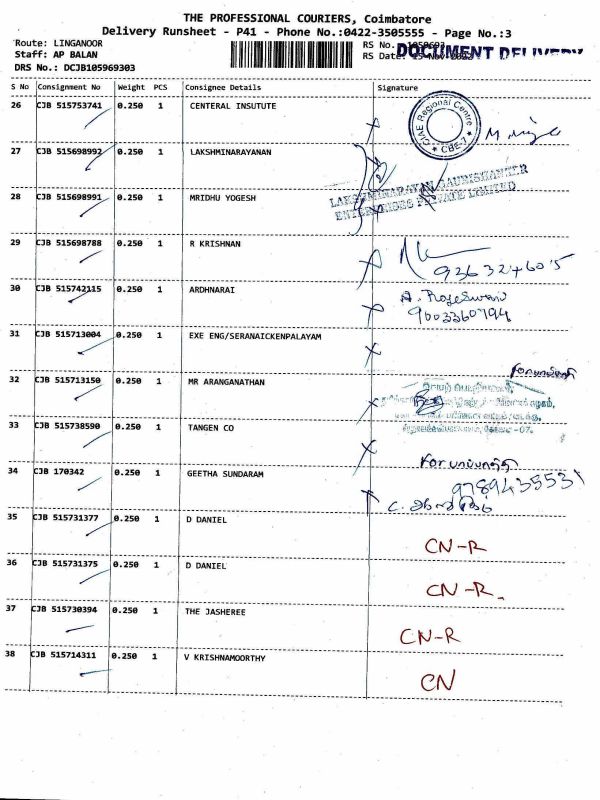 THE PROFESSIONAL COURIERS, Coimbatore
Delivery Runsheet - P41 - Phone No.:0422-3505555 - Page No.:3
Route: LINGANOOR
RS No.
Staff: AP BALAN
RS Date:
DOCUMENT DELIVERY
DRS No.: DCJB105969303
S No Consignment No Weight PCS Consignee Details Signature
26 CJB 515753741 0.250 1 CENTERAL INSUTUTE
Regional Centre
CBE-7
27 CJB 515698992 0.250 1 LAKSHMINARAYANAN
28 CJB 515698991 0.250 1 MRIDHU YOGESH
LAKSHMINARAYAN GAURISHANKER
ENTERPRISES PRIVATE LIMITED
29 CJB 515698788 0.250 1 R KRISHNAN
9363246075
30 CJB 515742115 0.250 1 ARDHNARAI
A. Rajeswari
9003360794
31 CJB 515713004 0.250 1 EXE ENG/SERANAICKENPALAYAM
32 CJB 515713150 0.250 1 MR ARANGANATHAN
33 CJB 515738590 0.250 1 TANGEN CO
34 CJB 170342 0.250 1 GEETHA SUNDARAM
9789435531
35 CJB 515731377 0.250 1 D DANIEL
CN-R
36 CJB 515731375 0.250 1 D DANIEL
CN-R.
37 CJB 515730394 0.250 1 THE JASHEREE
CN-R
38 CJB 515714311 0.250 1 V KRISHNAMOORTHY
CN